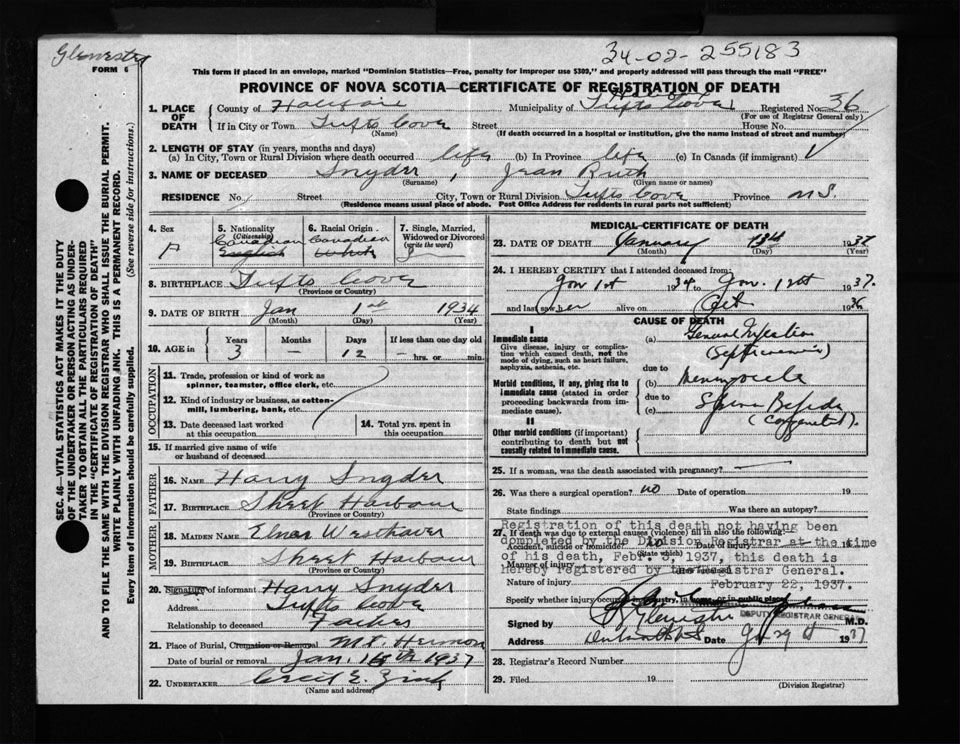 34-02-255183
FORM 6
This form if placed in an envelope, marked "Dominion Statistics—Free, penalty for improper use $300," and properly addressed will pass through the mail "FREE"
PROVINCE OF NOVA SCOTIA—CERTIFICATE OF REGISTRATION OF DEATH
1. PLACE OF DEATH County of Halifax Municipality of Tufts Cove Registered No. 36
(For use of Registrar General only)
If in City or Town Tufts Cove Street House No.
(Name) (If death occurred in a hospital or institution, give the name instead of street and number)
2. LENGTH OF STAY (in years, months and days)
(a) In City, Town or Rural Division where death occurred life (b) In Province life (c) In Canada (if immigrant)
3. NAME OF DECEASED Snyder, Jean Ruth
(Surname) (Given name or names)
RESIDENCE No. Street City, Town or Rural Division Tufts Cove Province N.S.
(Residence means usual place of abode. Post Office Address for residents in rural parts not sufficient)
SEC. 46—VITAL STATISTICS ACT MAKES IT THE DUTY
OF THE UNDERTAKER OR PERSON ACTING AS UNDER-
TAKER TO OBTAIN ALL THE PARTICULARS REQUIRED
IN THE "CERTIFICATE OF REGISTRATION OF DEATH"
AND TO FILE THE SAME WITH THE DIVISION REGISTRAR WHO SHALL ISSUE THE BURIAL PERMIT.
WRITE PLAINLY WITH UNFADING INK. THIS IS A PERMANENT RECORD.
Every item of information should be carefully supplied. (See reverse side for instructions.)
4. Sex F
5. Nationality (Citizenship) Canadian English
6. Racial Origin Canadian White
7. Single, Married, Widowed or Divorced (write the word)
8. BIRTHPLACE Tufts Cove
(Province or Country)
9. DATE OF BIRTH Jan 1st 1934
(Month) (Day) (Year)
10. AGE in Years Months Days If less than one day old
3 — 12 — hrs. or min.
OCCUPATION
11. Trade, profession or kind of work as spinner, teamster, office clerk, etc.
12. Kind of industry or business, as cotton-mill, lumbering, bank, etc.
13. Date deceased last worked at this occupation
14. Total yrs. spent in this occupation
15. If married give name of wife or husband of deceased
FATHER
16. NAME Harry Snyder
17. BIRTHPLACE Sheet Harbour
(Province or Country)
MOTHER
18. MAIDEN NAME Westhaver
19. BIRTHPLACE Sheet Harbour
(Province or Country)
20. Signature of informant Harry Snyder
Address Tufts Cove
Relationship to deceased Father
21. Place of Burial, Cremation or Removal Mt. Hermon
Date of burial or removal Jan. 1937
22. UNDERTAKER Cecil E. Zink
(Name and address)
MEDICAL CERTIFICATE OF DEATH
23. DATE OF DEATH January 13th 1937
(Month) (Day) (Year)
24. I HEREBY CERTIFY that I attended deceased from
Jan 1st 1934 to Jan. 12th 1937.
and last saw her alive on Oct 1936
CAUSE OF DEATH
I
Immediate cause
Give disease, injury or complication which caused death, not the mode of dying, such as heart failure, asphyxia, asthenia, etc.
(a) General Infection
(Septicaemia)
due to
Morbid conditions, if any, giving rise to immediate cause (stated in order proceeding backwards from immediate cause).
(b) Meningocele
due to
(c) Spina Bifida
(Congenital).
II
Other morbid conditions (if important) contributing to death but not causally related to immediate cause.
25. If a woman, was the death associated with pregnancy?
26. Was there a surgical operation? no Date of operation 19
State findings Was there an autopsy?
27. If death was due to external causes (violence) fill in also the following:
Accident, suicide or homicide? Date of injury 19
(State which)
Manner of injury
Nature of injury
Registration of this death not having been
completed by the Division Registrar at the time
of his death, Febr. 3, 1937, this death is
hereby registered by the Registrar General.
February 22, 1937.
Specify whether injury occurred in industry, in home, or in public place
DEPUTY REGISTRAR GENERAL
Signed by M.D.
Address Date 1937
28. Registrar's Record Number
29. Filed 19
(Division Registrar)